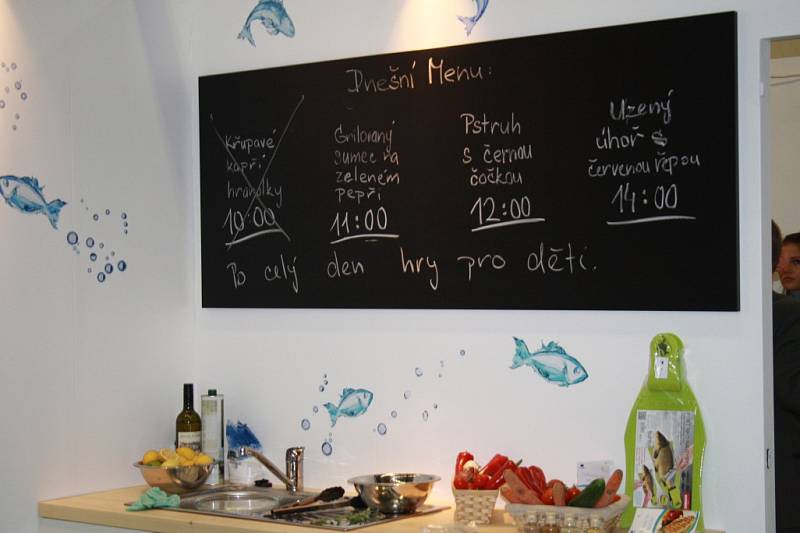 Dnešní Menu:
Křupavé
kapří
hranolky
10:00
Grilovaný
sumec na
zeleném
pepři
11:00
Pstruh
s černou
čočkou
12:00
Uzený
úhoř s
červenou řepou
14:00
Po celý den hry pro děti.